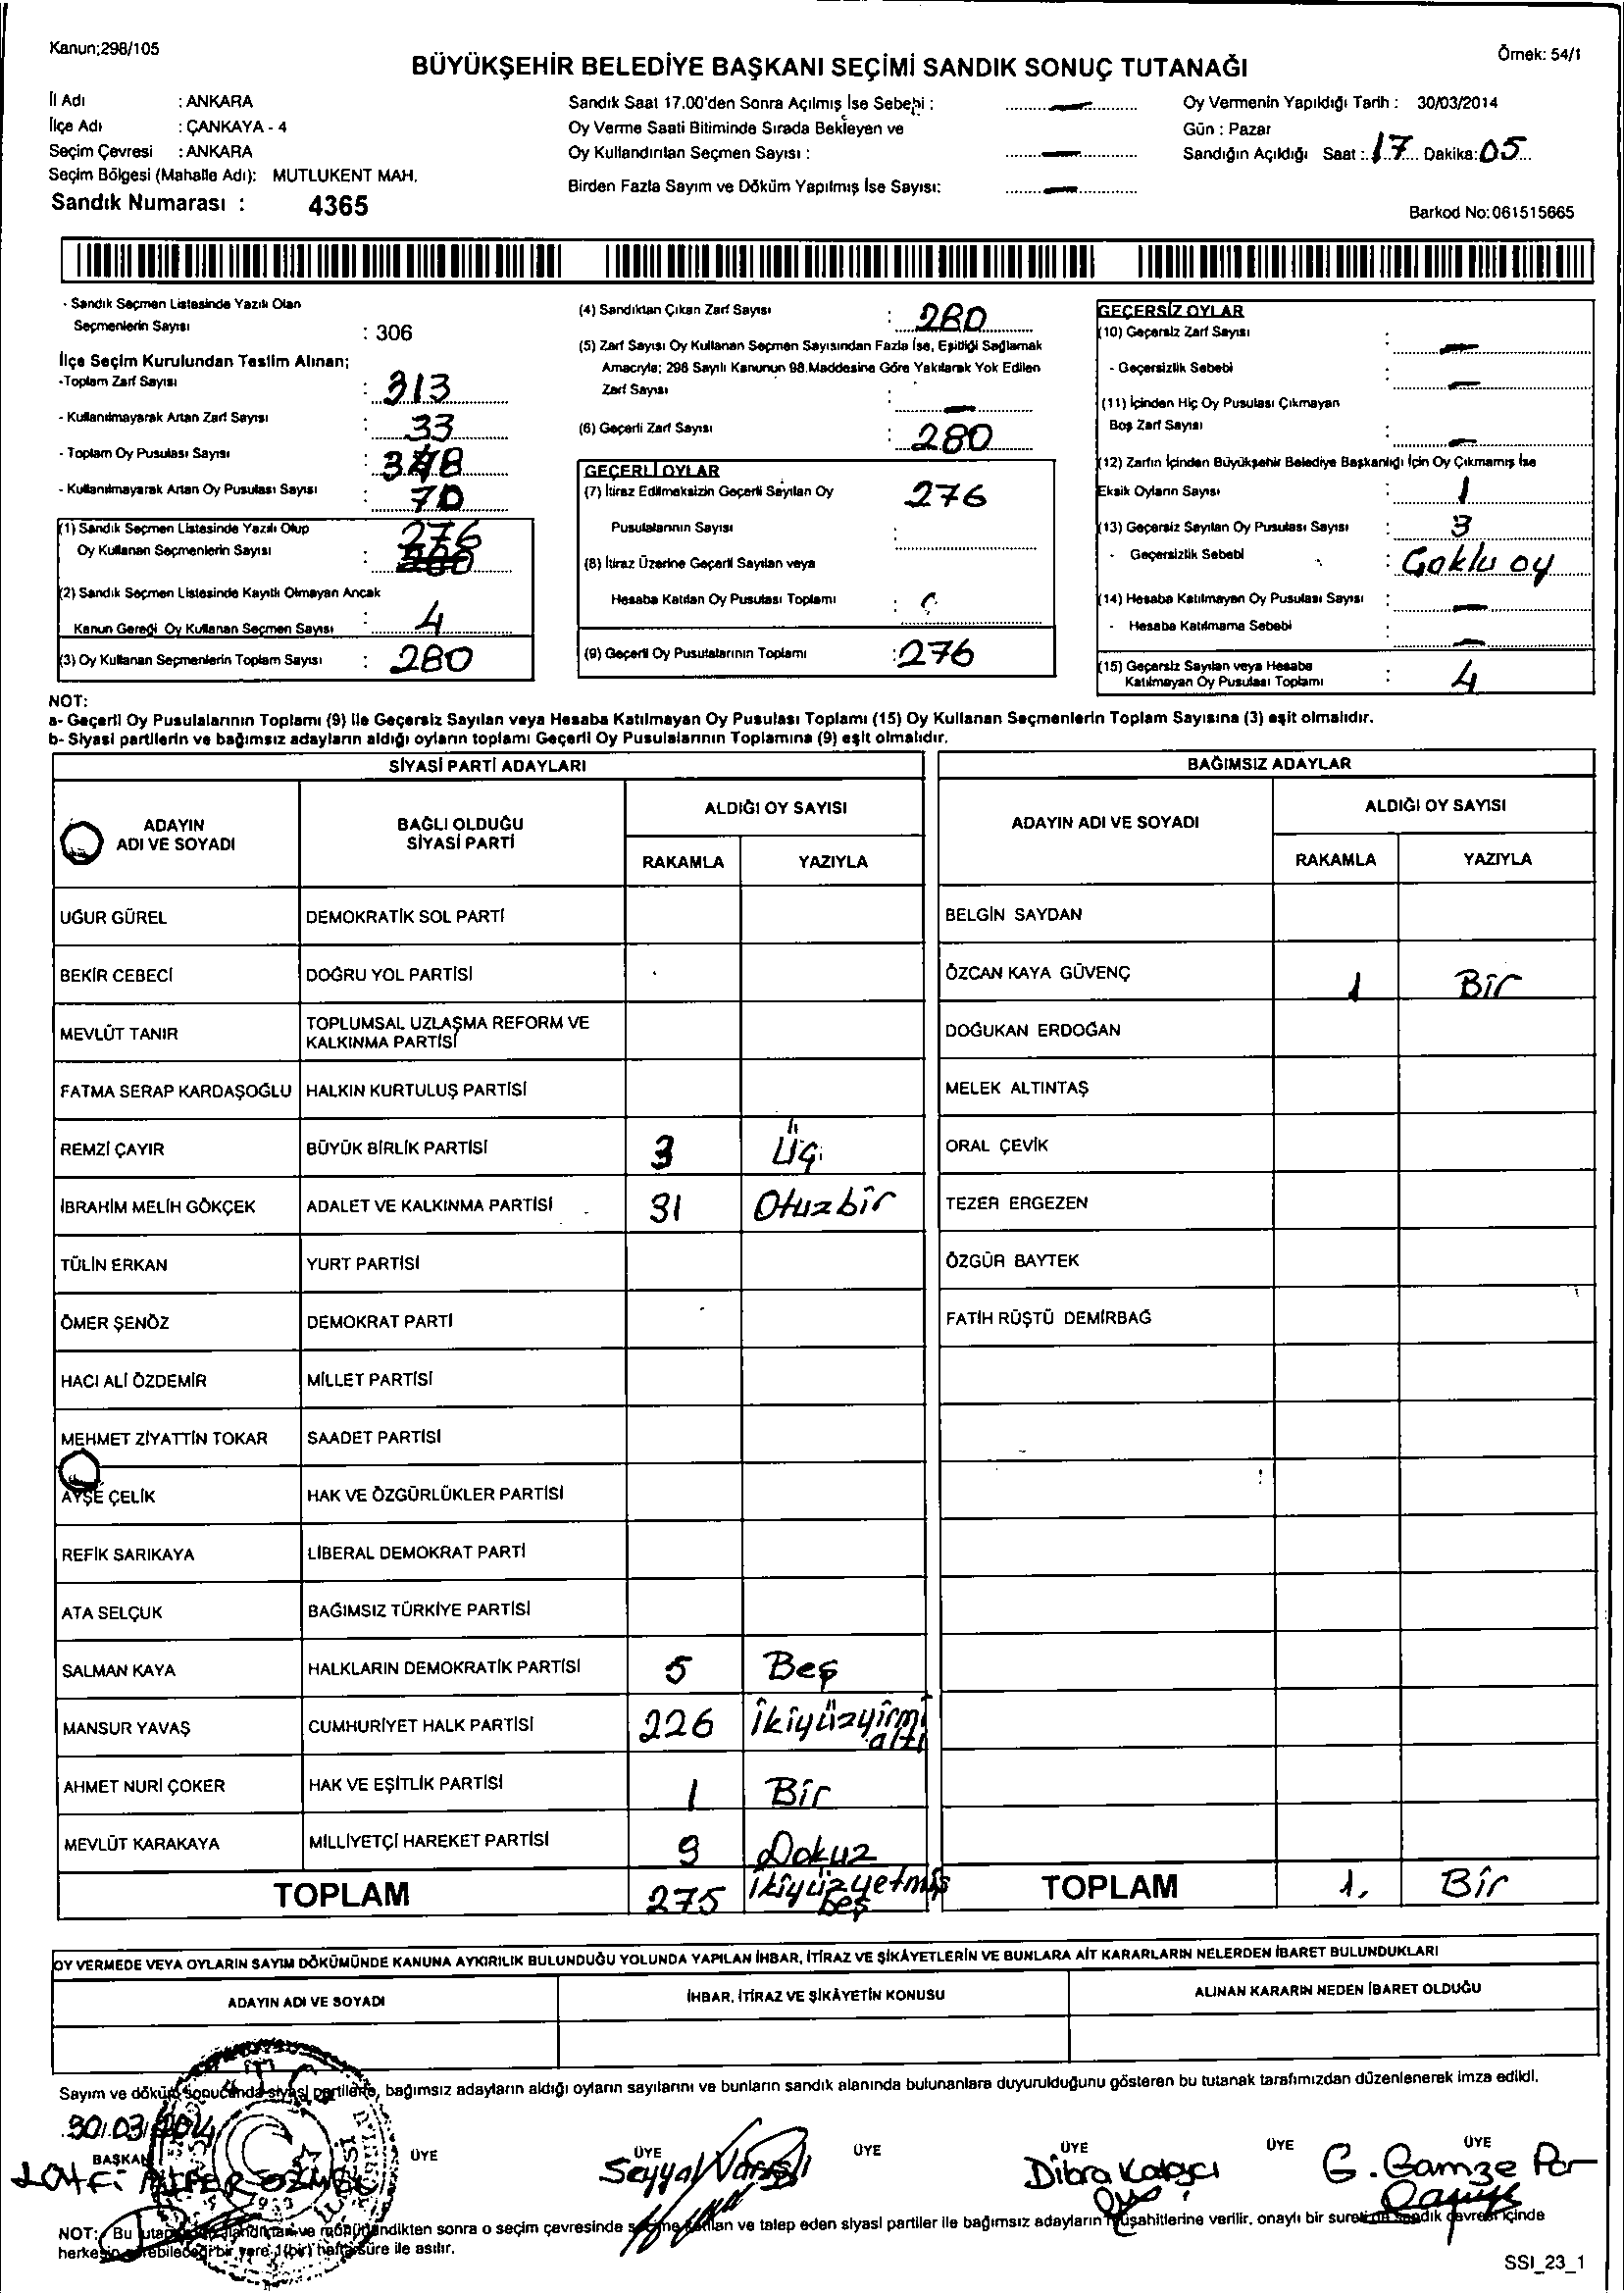 Kanun;298/105
Örnek: 54/1
BÜYÜKŞEHİR BELEDİYE BAŞKANI SEÇİMİ SANDIK SONUÇ TUTANAĞI
İl Adı : ANKARA
İlçe Adı : ÇANKAYA - 4
Seçim Çevresi : ANKARA
Seçim Bölgesi (Mahalle Adı): MUTLUKENT MAH.
Sandık Numarası : 4365
Sandık Saat 17.00'den Sonra Açılmış İse Sebebi : —
Oy Verme Saati Bitiminde Sırada Bekleyen ve
Oy Kullandırılan Seçmen Sayısı : —
Birden Fazla Sayım ve Döküm Yapılmış İse Sayısı: —
Oy Vermenin Yapıldığı Tarih : 30/03/2014
Gün : Pazar
Sandığın Açıldığı Saat : 17 Dakika: 05
Barkod No: 061515665
- Sandık Seçmen Listesinde Yazılı Olan
Seçmenlerin Sayısı : 306
İlçe Seçim Kurulundan Teslim Alınan;
-Toplam Zarf Sayısı : 313
- Kullanılmayarak Artan Zarf Sayısı : 33
- Toplam Oy Pusulası Sayısı : 348
- Kullanılmayarak Artan Oy Pusulası Sayısı : 70
(1) Sandık Seçmen Listesinde Yazılı Olup
Oy Kullanan Seçmenlerin Sayısı : 276
(2) Sandık Seçmen Listesinde Kayıtlı Olmayan Ancak
Kanun Gereği Oy Kullanan Seçmen Sayısı : 4
(3) Oy Kullanan Seçmenlerin Toplam Sayısı : 280
(4) Sandıktan Çıkan Zarf Sayısı : 280
(5) Zarf Sayısı Oy Kullanan Seçmen Sayısından Fazla İse, Eşitliği Sağlamak
Amacıyla; 298 Sayılı Kanunun 98.Maddesine Göre Yakılarak Yok Edilen
Zarf Sayısı : —
(6) Geçerli Zarf Sayısı : 280
GEÇERLİ OYLAR
(7) İtiraz Edilmeksizin Geçerli Sayılan Oy 276
Pusulalarının Sayısı :
(8) İtiraz Üzerine Geçerli Sayılan veya
Hesaba Katılan Oy Pusulası Toplamı :
(9) Geçerli Oy Pusulalarının Toplamı : 276
GEÇERSİZ OYLAR
(10) Geçersiz Zarf Sayısı : —
- Geçersizlik Sebebi : —
(11) İçinden Hiç Oy Pusulası Çıkmayan
Boş Zarf Sayısı : —
(12) Zarfın İçinden Büyükşehir Belediye Başkanlığı İçin Oy Çıkmamış İse
Eksik Oyların Sayısı : 1
(13) Geçersiz Sayılan Oy Pusulası Sayısı : 3
- Geçersizlik Sebebi : Çoklu oy
(14) Hesaba Katılmayan Oy Pusulası Sayısı : —
- Hesaba Katılmama Sebebi : —
(15) Geçersiz Sayılan veya Hesaba
Katılmayan Oy Pusulası Toplamı : 4
NOT:
a- Geçerli Oy Pusulalarının Toplamı (9) ile Geçersiz Sayılan veya Hesaba Katılmayan Oy Pusulası Toplamı (15) Oy Kullanan Seçmenlerin Toplam Sayısına (3) eşit olmalıdır.
b- Siyasi partilerin ve bağımsız adayların aldığı oyların toplamı Geçerli Oy Pusulalarının Toplamına (9) eşit olmalıdır.
SİYASİ PARTİ ADAYLARI
ADAYIN ADI VE SOYADI
BAĞLI OLDUĞU SİYASİ PARTİ
ALDIĞI OY SAYISI
RAKAMLA YAZIYLA
UĞUR GÜREL DEMOKRATİK SOL PARTİ
BEKİR CEBECİ DOĞRU YOL PARTİSİ
MEVLÜT TANIR TOPLUMSAL UZLAŞMA REFORM VE KALKINMA PARTİSİ
FATMA SERAP KARDAŞOĞLU HALKIN KURTULUŞ PARTİSİ
REMZİ ÇAYIR BÜYÜK BİRLİK PARTİSİ 3 Üç
İBRAHİM MELİH GÖKÇEK ADALET VE KALKINMA PARTİSİ 31 Otuzbir
TÜLİN ERKAN YURT PARTİSİ
ÖMER ŞENÖZ DEMOKRAT PARTİ
HACI ALİ ÖZDEMİR MİLLET PARTİSİ
MEHMET ZİYATTİN TOKAR SAADET PARTİSİ
AYŞE ÇELİK HAK VE ÖZGÜRLÜKLER PARTİSİ
REFİK SARIKAYA LİBERAL DEMOKRAT PARTİ
ATA SELÇUK BAĞIMSIZ TÜRKİYE PARTİSİ
SALMAN KAYA HALKLARIN DEMOKRATİK PARTİSİ 5 Beş
MANSUR YAVAŞ CUMHURİYET HALK PARTİSİ 226 ikiyüzyirmi altı
AHMET NURİ ÇOKER HAK VE EŞİTLİK PARTİSİ 1 Bir
MEVLÜT KARAKAYA MİLLİYETÇİ HAREKET PARTİSİ 9 Dokuz
TOPLAM 275 ikiyüzyetmiş beş
BAĞIMSIZ ADAYLAR
ADAYIN ADI VE SOYADI
ALDIĞI OY SAYISI
RAKAMLA YAZIYLA
BELGİN SAYDAN
ÖZCAN KAYA GÜVENÇ 1 Bir
DOĞUKAN ERDOĞAN
MELEK ALTINTAŞ
ORAL ÇEVİK
TEZER ERGEZEN
ÖZGÜR BAYTEK
FATİH RÜŞTÜ DEMİRBAĞ
TOPLAM 1. Bir
OY VERMEDE VEYA OYLARIN SAYIM DÖKÜMÜNDE KANUNA AYKIRILIK BULUNDUĞU YOLUNDA YAPILAN İHBAR, İTİRAZ VE ŞİKÂYETLERİN VE BUNLARA AİT KARARLARIN NELERDEN İBARET BULUNDUKLARI
ADAYIN ADI VE SOYADI
İHBAR, İTİRAZ VE ŞİKÂYETİN KONUSU
ALINAN KARARIN NEDEN İBARET OLDUĞU
Sayım ve döküm sonucunda siyasi partilerle, bağımsız adayların aldığı oyların sayılarını ve bunların sandık alanında bulunanlara duyurulduğunu gösteren bu tutanak tarafımızdan düzenlenerek imza edildi.
30.03.2014
BAŞKAN ÜYE ÜYE ÜYE ÜYE ÜYE ÜYE
Dibra G. Gamze Par
NOT: Bu ve mühürlendikten sonra o seçim çevresinde ve talep eden siyasi partiler ile bağımsız adayların müşahitlerine verilir, onaylı bir sureti de sandık çevresi içinde
herkesin görebileceği bir yere 1 (bir) hafta süre ile asılır.
SSI_23_1